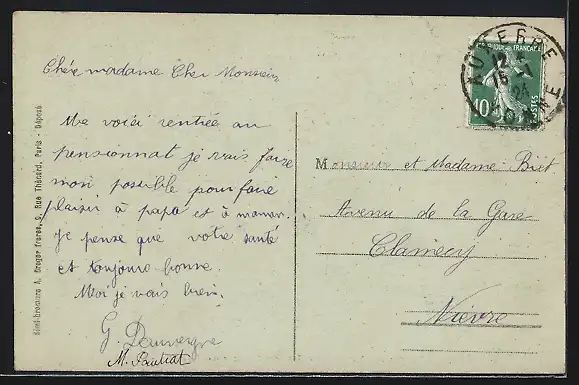 Chère madame Cher Monsieur
Me voici rentrée au
pensionnat je vais faire
mon possible pour faire
plaisir à papa et à maman.
Je pense que votre santé
est toujours bonne.
Moi je vais bien.
G Dauvergne
M.
Simi-bromure A. Breger frères, 9, Rue Thénard, Paris - Déposé
AUXERRE
YONNE
24
FRANÇAISE
10
POSTES
Monsieur et Madame
Avenue de la Gare
Clamecy
Nièvre